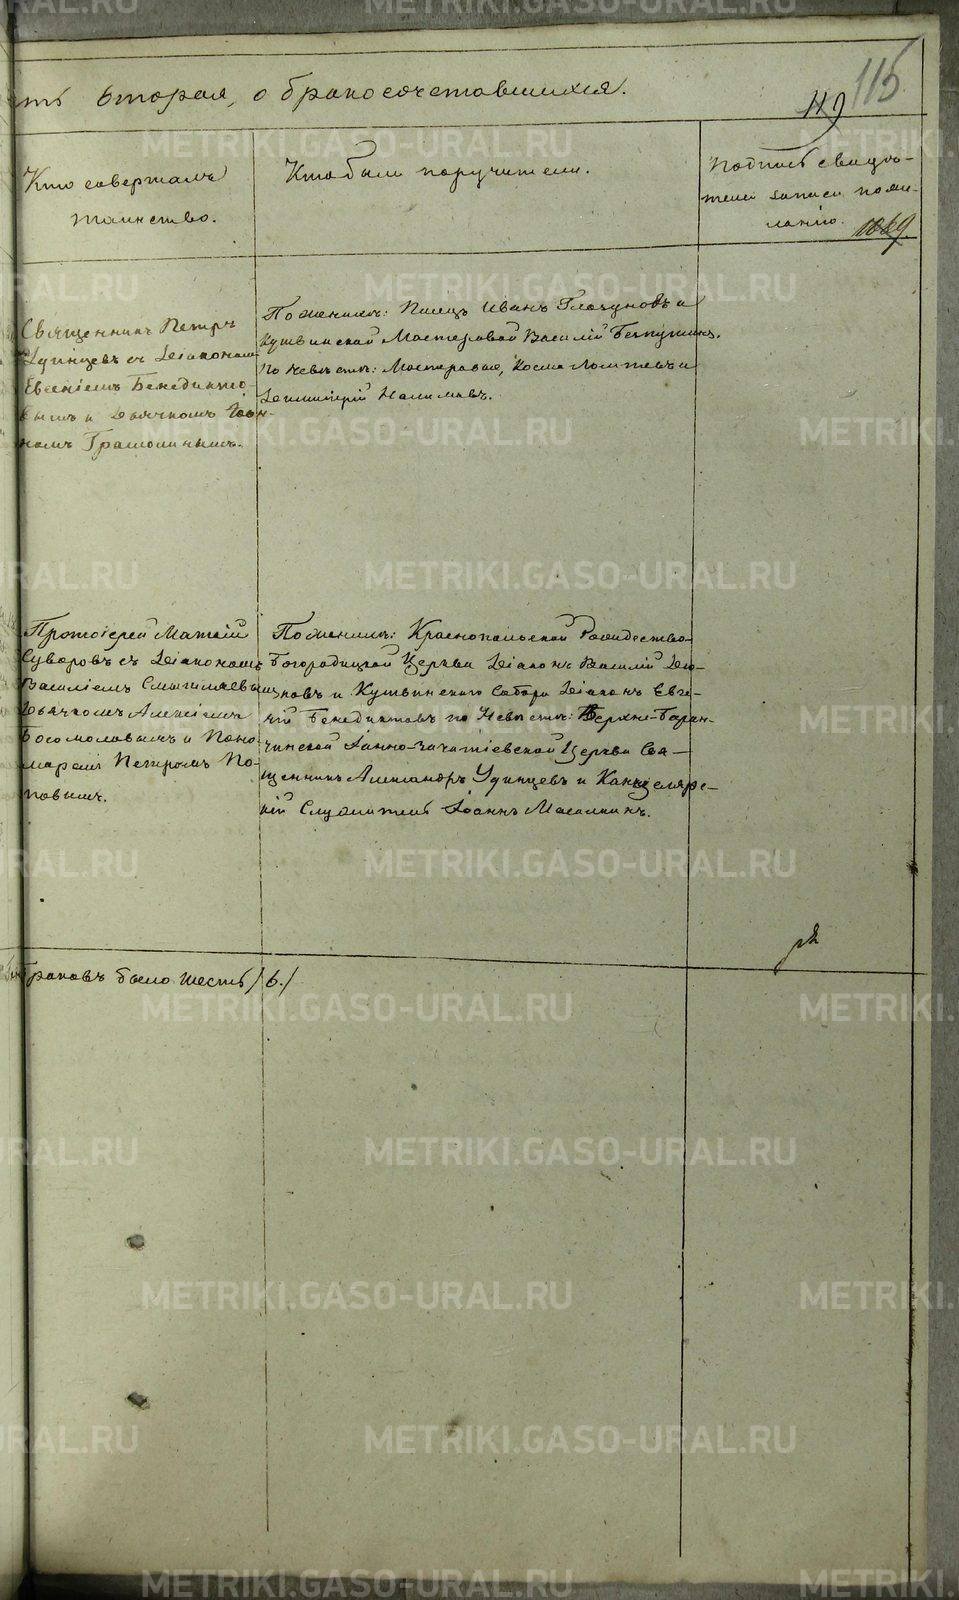 сть вторая, о бракосочетавшихся.
115
119
Кто совершалъ
таинство.
Кто были поручители.
Подпись свидѣ-
телей записи по же-
ланію.
1069.
Священникъ Петръ
Удинцевъ съ Діакономъ
Евгеніемъ Бенедикто-
вымъ и дьячкомъ Іоан-
номъ Грамолинымъ.
По женихѣ: Писецъ Иванъ Глазуновъ и
Кушвинской Мастеровой Василій
По невѣстѣ: Мастеровые, Косма и
Димитрій Налимовъ.
Протоіерей Матѳій
Суворовъ съ Діакономъ
Василіемъ
Дьячкомъ Алексіемъ
Богомоловымъ и Поно-
маремъ Петромъ По-
повымъ.
По женихѣ: Краснопольской Рождество-
Богородицкой Церкви Діаконъ Василій Дю-
ковъ и Кушвинскаго Собора Діаконъ Евге-
ній Бенедиктовъ по Невѣстѣ: Верхне-Баран-
чинской Іанно-зачатіевской Церкви Свя-
щенникъ Александръ Удинцевъ и Канцелярс-
кій Служитель Іоаннъ Масалкинъ.
браковъ было шесть /6./
METRIKI.GASO-URAL.RU